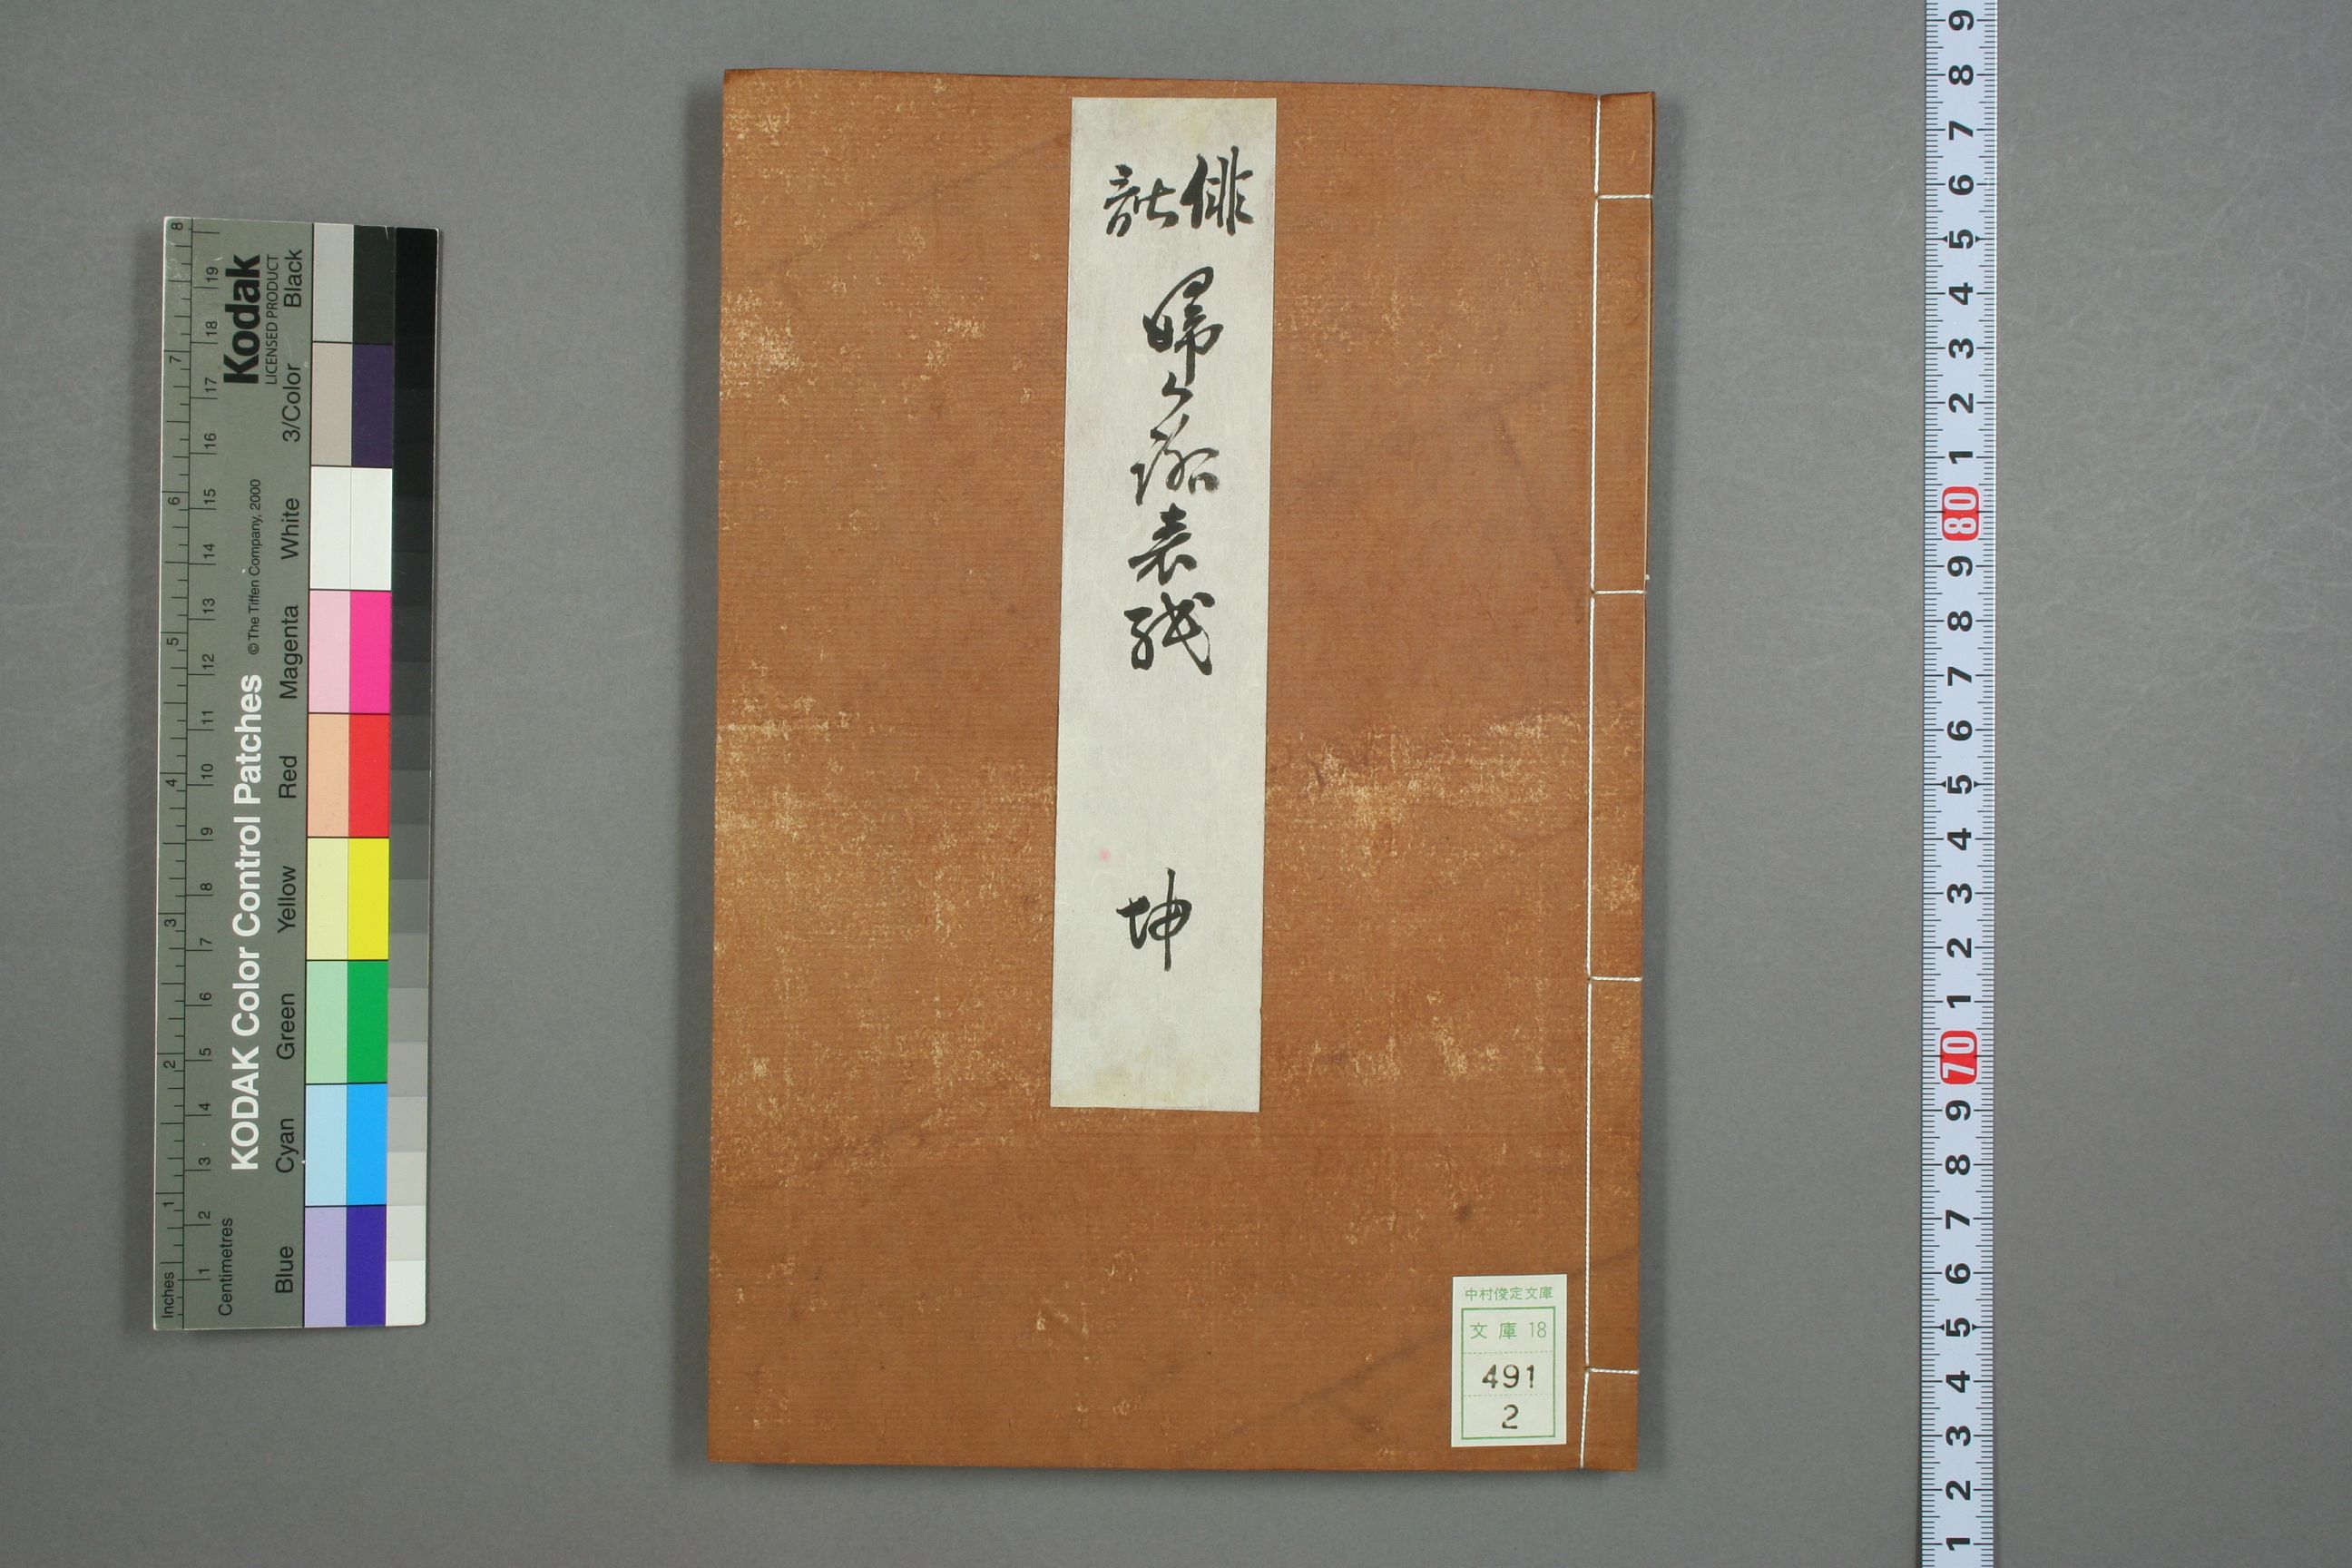 俳諧
婦く路表紙
坤
中村俊定文庫
文庫 18
491
2
Kodak
LICENSED PRODUCT
KODAK Color Control Patches
© The Tiffen Company, 2000
Blue Cyan Green Yellow Red Magenta White 3/Color Black
Inches 1 2 3 4 5 6 7 8
Centimetres 1 2 3 4 5 6 7 8 9 10 11 12 13 14 15 16 17 18 19
9 8 7 6 5 4 3 2 1 80 9 8 7 6 5 4 3 2 1 70 9 8 7 6 5 4 3 2 1